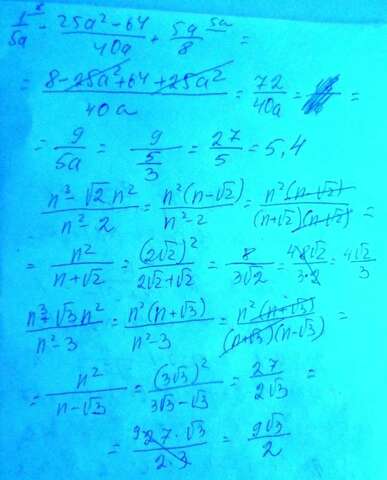 1⁸/5a - (25a² - 64)/40a + 5a/8 ⁵ᵃ =
= (8 - 25a² + 64 + 25a²)/40a = 72/40a = =
= 9/5a = 9/(5/3) = 27/5 = 5,4
(n³ - √2 n²)/(n² - 2) = n²(n - √2)/(n² - 2) = n²(n - √2)/((n + √2)(n - √2)) =
= n²/(n + √2) = (2√2)²/(2√2 + √2) = 8/(3√2) = 48√2/(3·2) = 4√2/3
(n³ + √3 n²)/(n² - 3) = n²(n + √3)/(n² - 3) = n²(n + √3)/((n + √3)(n - √3)) =
= n²/(n - √3) = (3√3)²/(3√3 - √3) = 27/(2√3) =
= ⁹27·√3/(2·3) = 9√3/2